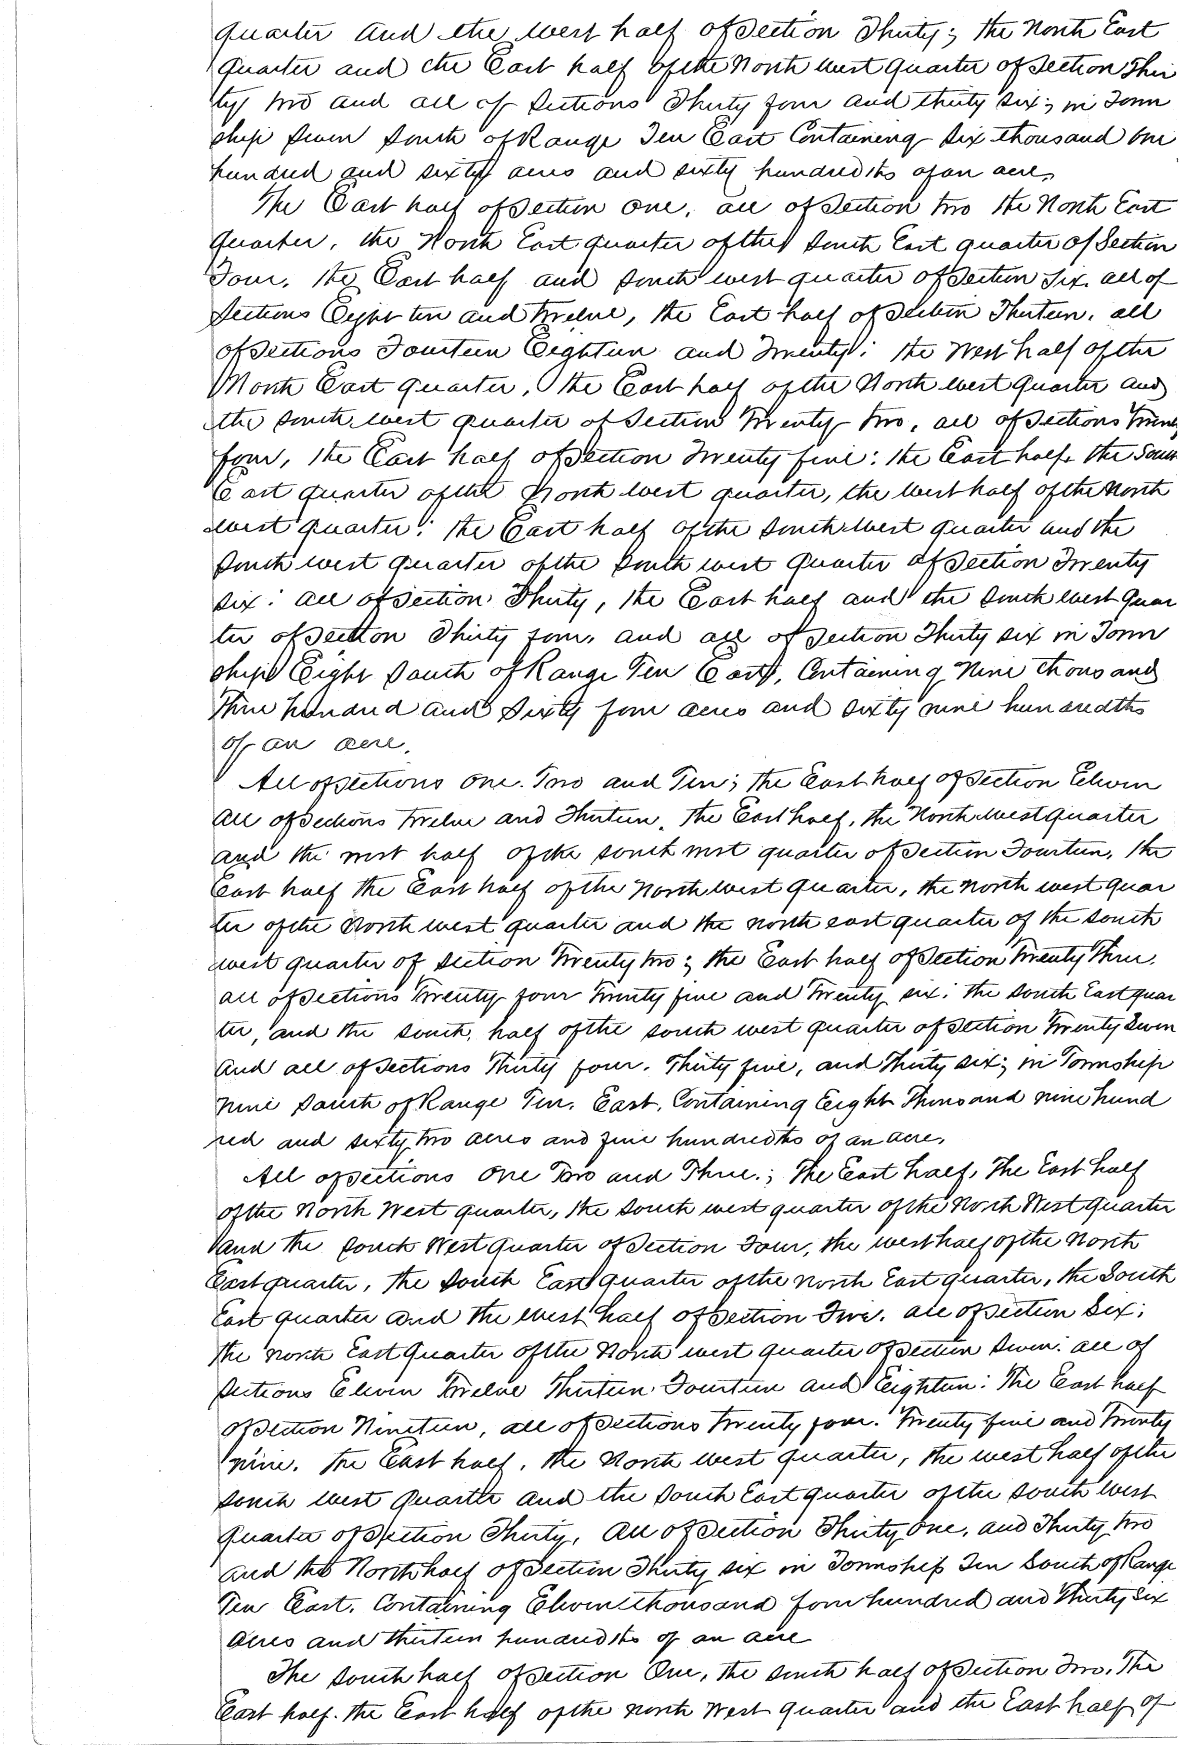 quarter and the west half of Section Thirty; the North East
quarter and the East half of the North west quarter of Section Thir
ty two and all of Sections Thirty four and thirty six; in Town
ship Seven South of Range Ten East Containing six thousand one
hundred and sixty acres and sixty hundredths of an acre.
The East half of Section one, all of Section two the North East
quarter, the North East quarter of the South East quarter of Section
Four, the East half and South west quarter of Section Six. all of
Sections Eight ten and twelve, the East half of Section Thirteen, all
of Sections Fourteen Eighteen and Twenty; the West half of the
North East quarter, the East half of the North west quarter and
the South west quarter of Section Twenty two, all of Sections Twenty
four, the East half of Section Twenty five: the East half, the South
East quarter of the North west quarter, the west half of the North
west quarter; the East half of the South west quarter and the
South west quarter of the South west quarter of Section Twenty
six: all of Section Thirty, the East half and the South west Quar
ter of Section Thirty four, and all of Section Thirty six in Town
ship Eight South of Range Ten East, Containing Nine thousand
Three hundred and Sixty four acres and sixty nine hundredths
of an acre.
All of Sections One. Two and Ten; the East half of Section Eleven
all of Sections twelve and Thirteen. the East half, the North west quarter
and the west half of the South west quarter of Section Fourteen, the
East half the East half of the North west quarter, the North west quar
ter of the North west quarter and the north east quarter of the South
west quarter of Section Twenty two; the East half of Section Twenty Three.
all of Sections Twenty four Twenty five and Twenty six: the South East quar
ter, and the South, half of the South west quarter of Section Twenty Seven
and all of Sections Thirty four. Thirty five, and Thirty six; in Township
nine South of Range Ten. East. Containing Eight Thousand nine hund
red and sixty two acres and five hundredths of an acre.
All of Sections One Two and Three.; The East half, The East half
of the North West quarter, the South west quarter of the North West quarter
and the South West quarter of Section Four, the west half of the North
East quarter, the South East quarter of the North East quarter, the South
East quarter and the West half of Section Five. all of Section Six;
the North East Quarter of the North west quarter of Section Seven: all of
Sections Eleven Twelve Thirteen Fourteen and Eighteen: The East half
of Section Nineteen, all of Sections twenty four. Twenty five and Twenty
nine. the East half, the North west quarter, the west half of the
South west Quarter and the South East quarter of the South west
quarter of Section Thirty, all of Section Thirty One, and Thirty two
and the North half of Section Thirty six in Township Ten South of Range
Ten East. Containing Eleven thousand four hundred and Thirty Six
acres and thirteen hundredths of an acre
The South half of Section One, the South half of Section Two. The
East half. the East half of the North West quarter and the East half of